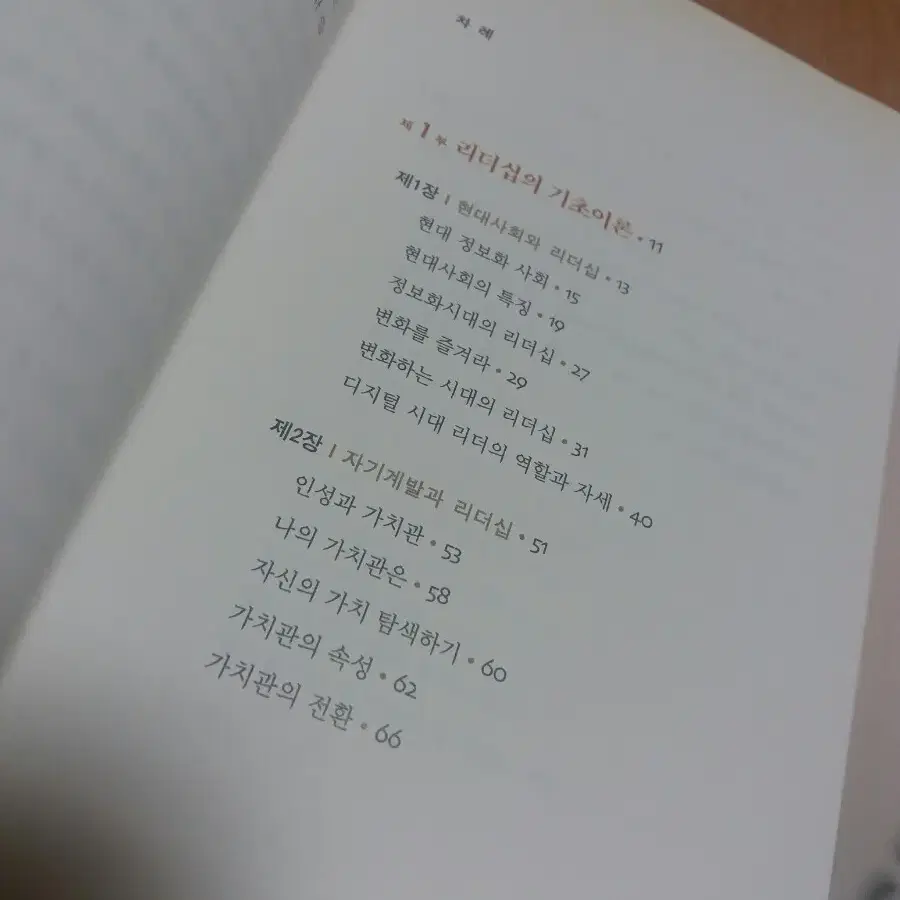 차 례
제 1 부 리더십의 기초이론 • 11
제1장 | 현대사회와 리더십 • 13
현대 정보화 사회 • 15
현대사회의 특징 • 19
정보화시대의 리더십 • 27
변화를 즐겨라 • 29
변화하는 시대의 리더십 • 31
디지털 시대 리더의 역할과 자세 • 40
제2장 | 자기계발과 리더십 • 51
인성과 가치관 • 53
나의 가치관은 • 58
자신의 가치 탐색하기 • 60
가치관의 속성 • 62
가치관의 전환 • 66